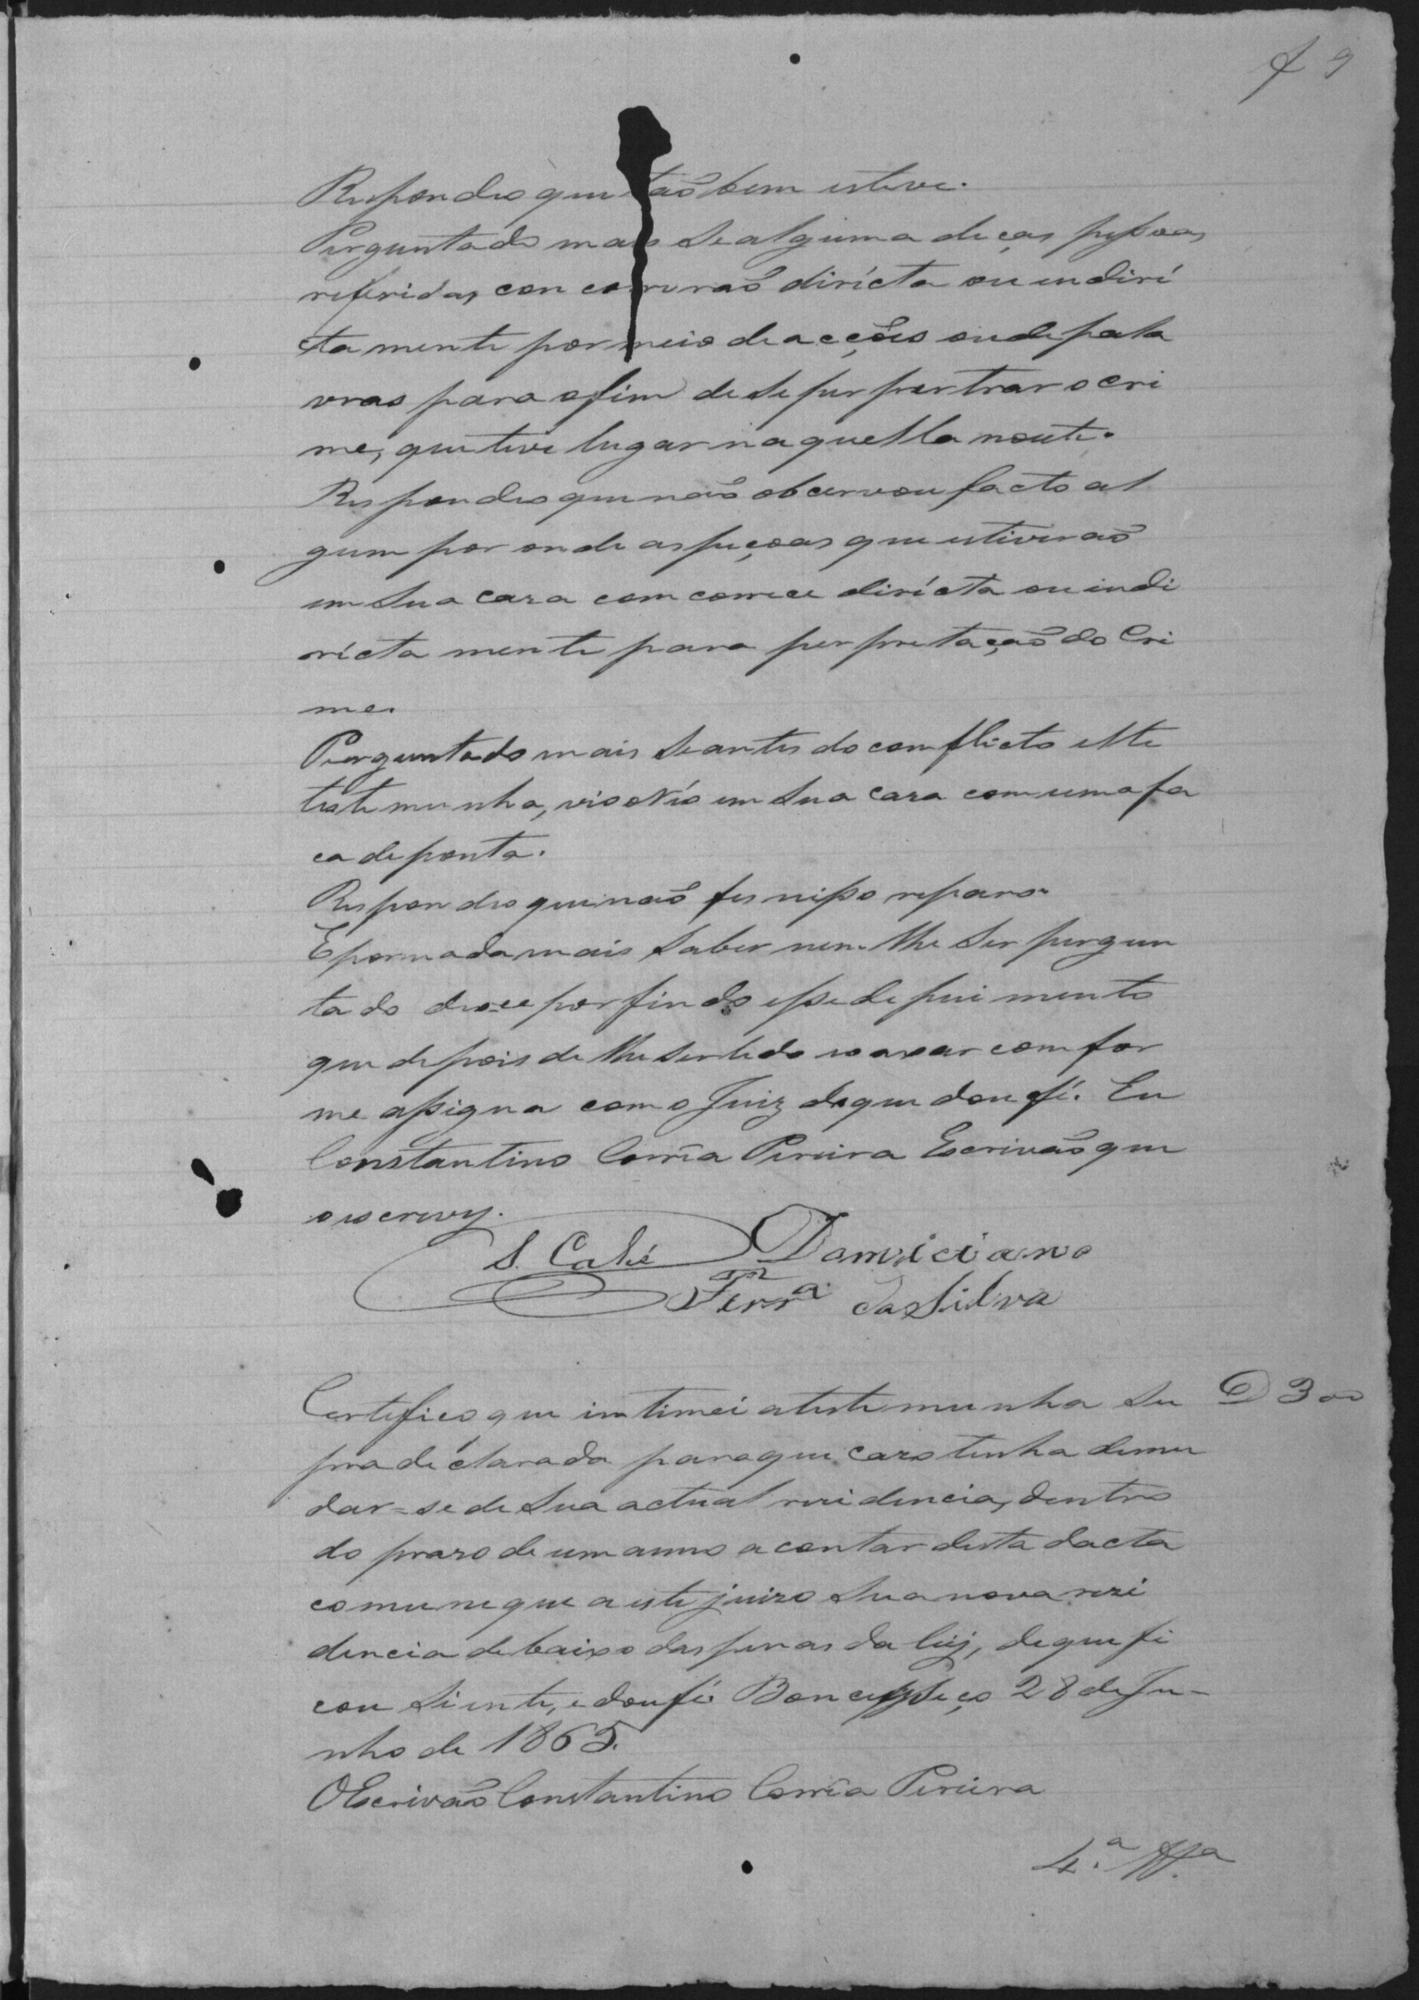 f 9
Respondeo que tão bem esteve.
Perguntado mais se alguma deças pessoas
referidas, con correrão dirícta ou endirí
cta mente por meio de acções ou de pala
vras para o fim de se perpertrar o cri
me, que teve lugar naquella noute.
Respondeo que não obcervou facto al
gum por onde as peçoas que estiverão
em sua caza comcorrece dirícta ou indi
ricta mente para perpretação do Cri
me.
Perguntado mais se antes do comflicto elle
testemunha, vio o Río em sua caza com uma fa
ca de ponta.
Respondeo que não fes nisso reparo.
E por nada mais saber nem lhe ser pergun
tado deoce por findo esse depuimento
que depois de lhe ser lido e o axar comfor
me assigna com o Juiz do que dou fé. Eu
Constantino Corrêa Pereira Escrivão que
o escrevy.
S. Calé Domiciano
Ferr.ª da Silva
Certifico que intimei a testemunha su D 300
pra déclarada para que cazo tenha de mu
dar-se de sua actual rezidencia, dentro
do prazo de um anno a contar desta dacta
comuneque a este juizo sua nova rezi
dencia debaixo das penas da lêi, de que fi
cou siente, e dou fé. 28 de Ju-
nho de 1865.
O Escrivão Constantino Corrêa Pereira
4.ª Tt.ª